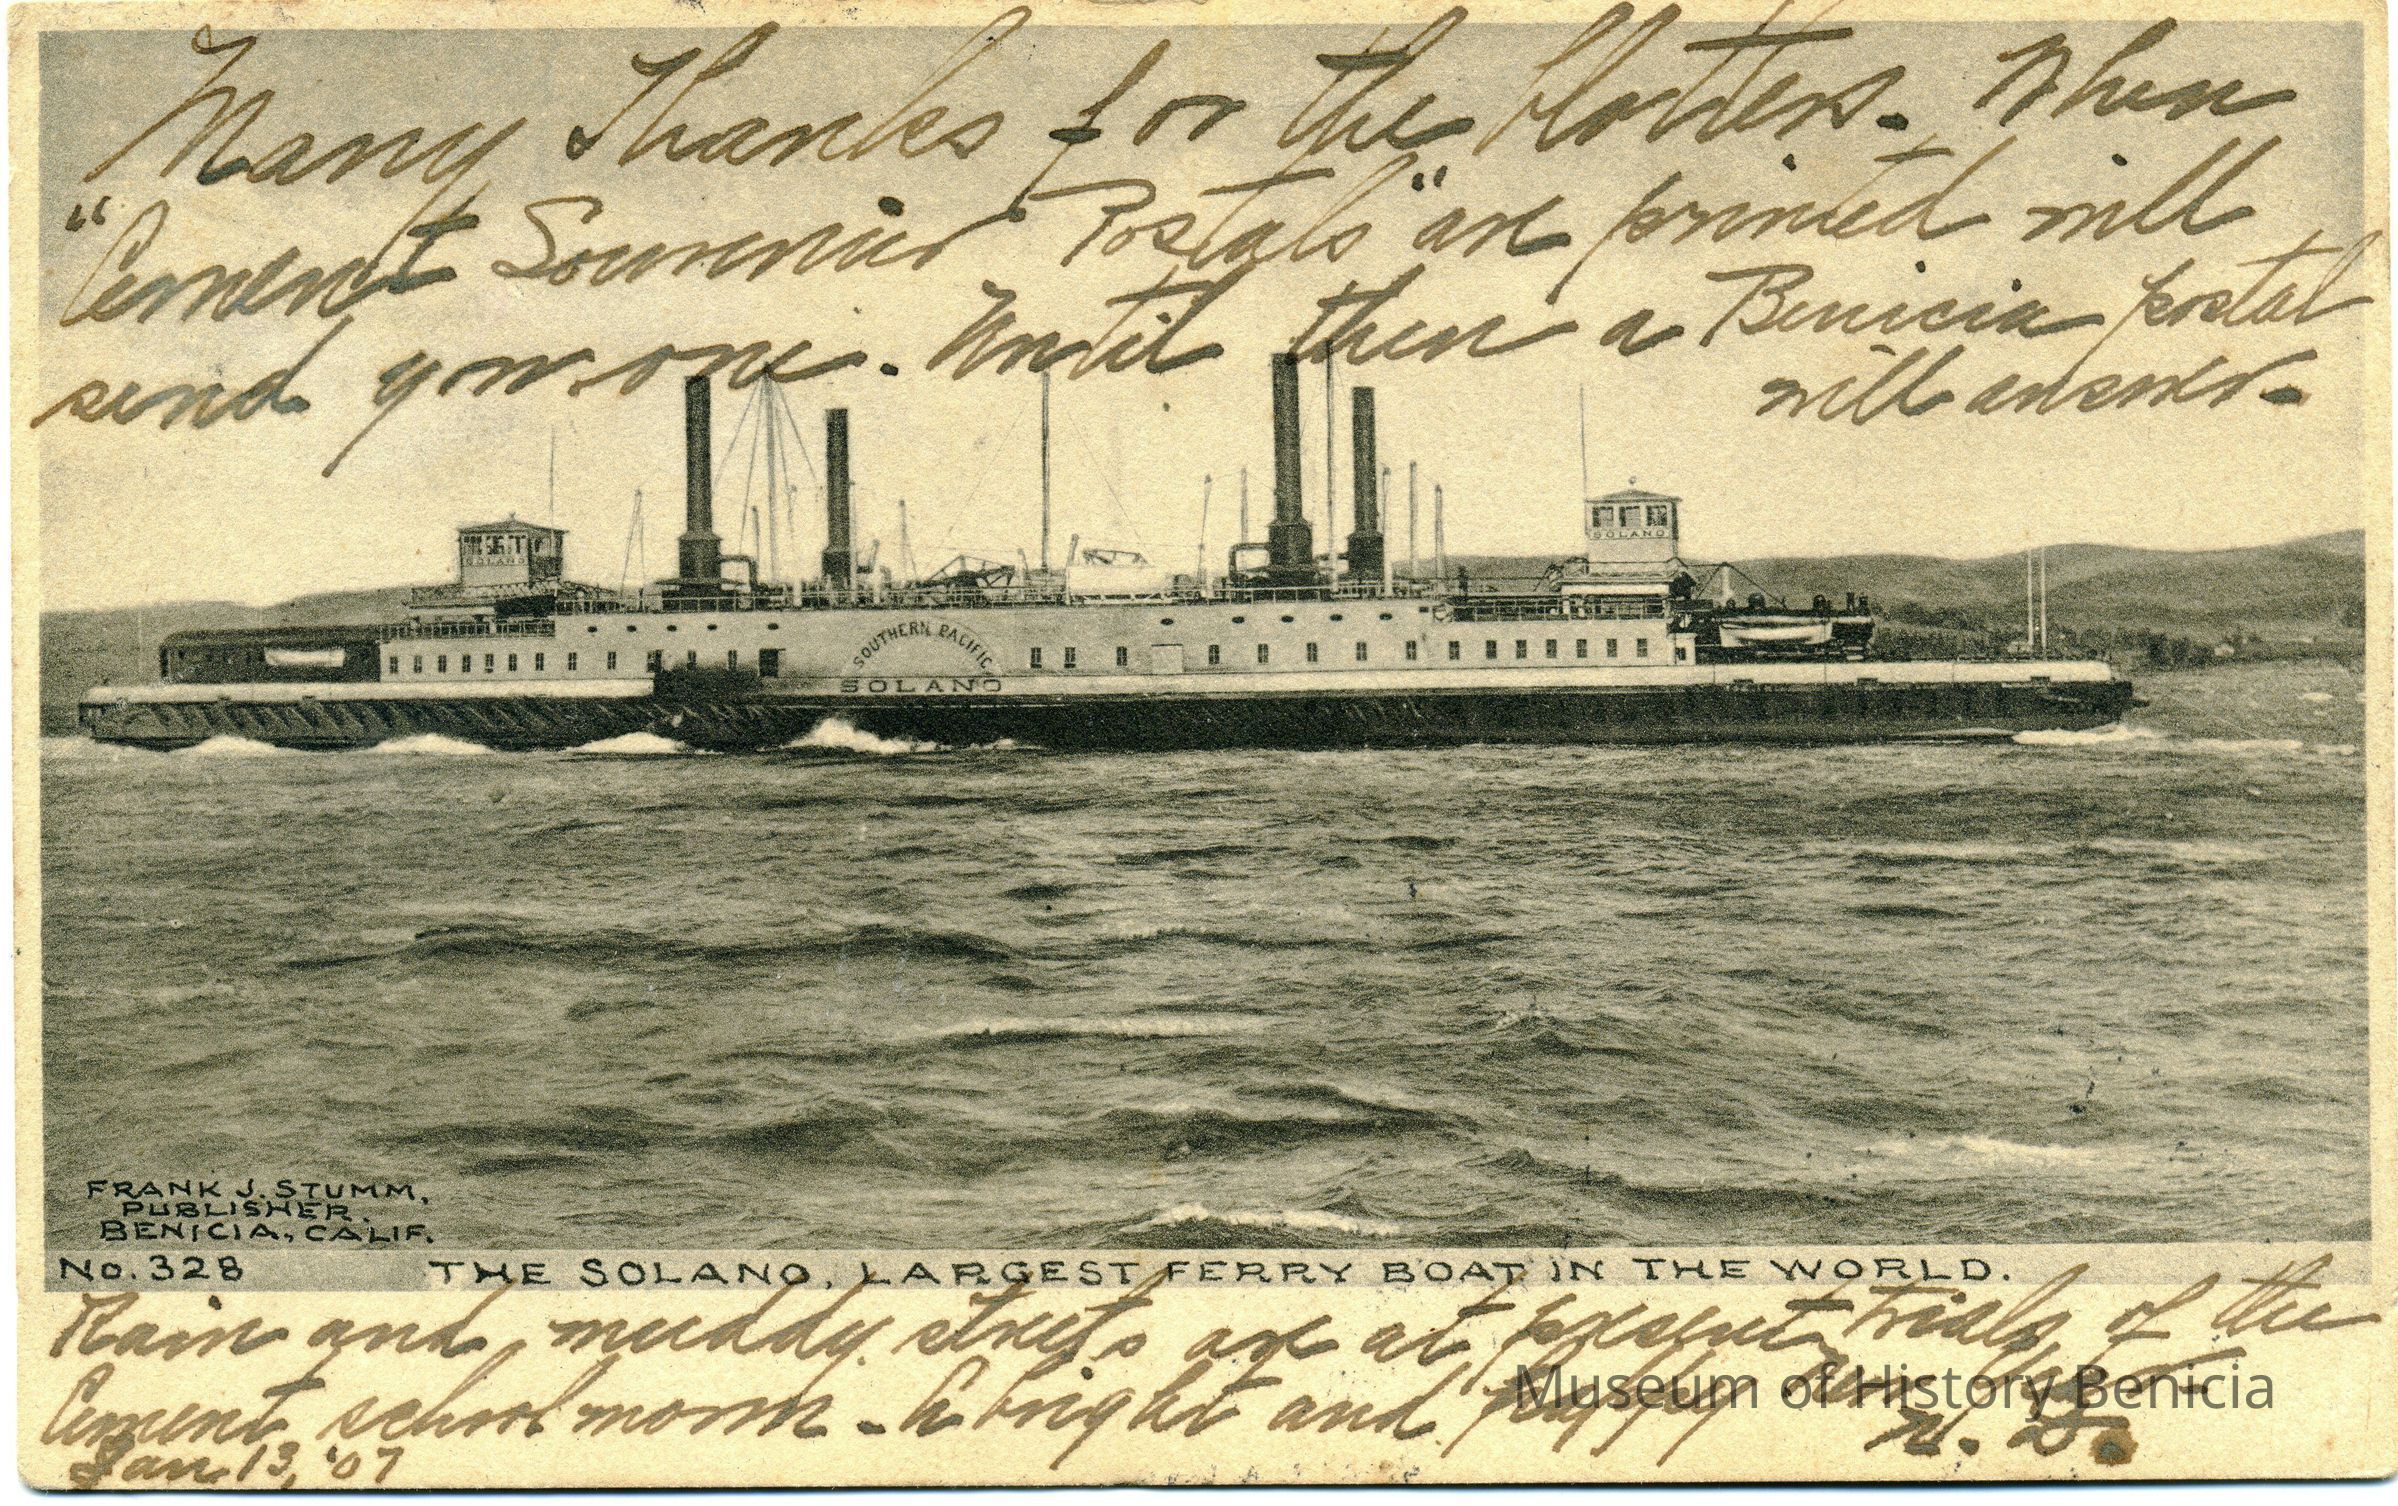 Many Thanks for the blotters. When
"Cement Souvenir Postals" are printed will
send you one. Until then a Benicia postal
will answer.
SOLANO
SOLANO
SOUTHERN PACIFIC
SOLANO
FRANK J. STUMM,
PUBLISHER,
BENICIA, CALIF.
No. 328
THE SOLANO, LARGEST FERRY BOAT IN THE WORLD.
Rain and muddy streets are at present trials of the
Cement schoolmarm. A bright and happy
Museum of History Benicia
Jan. 13, '07